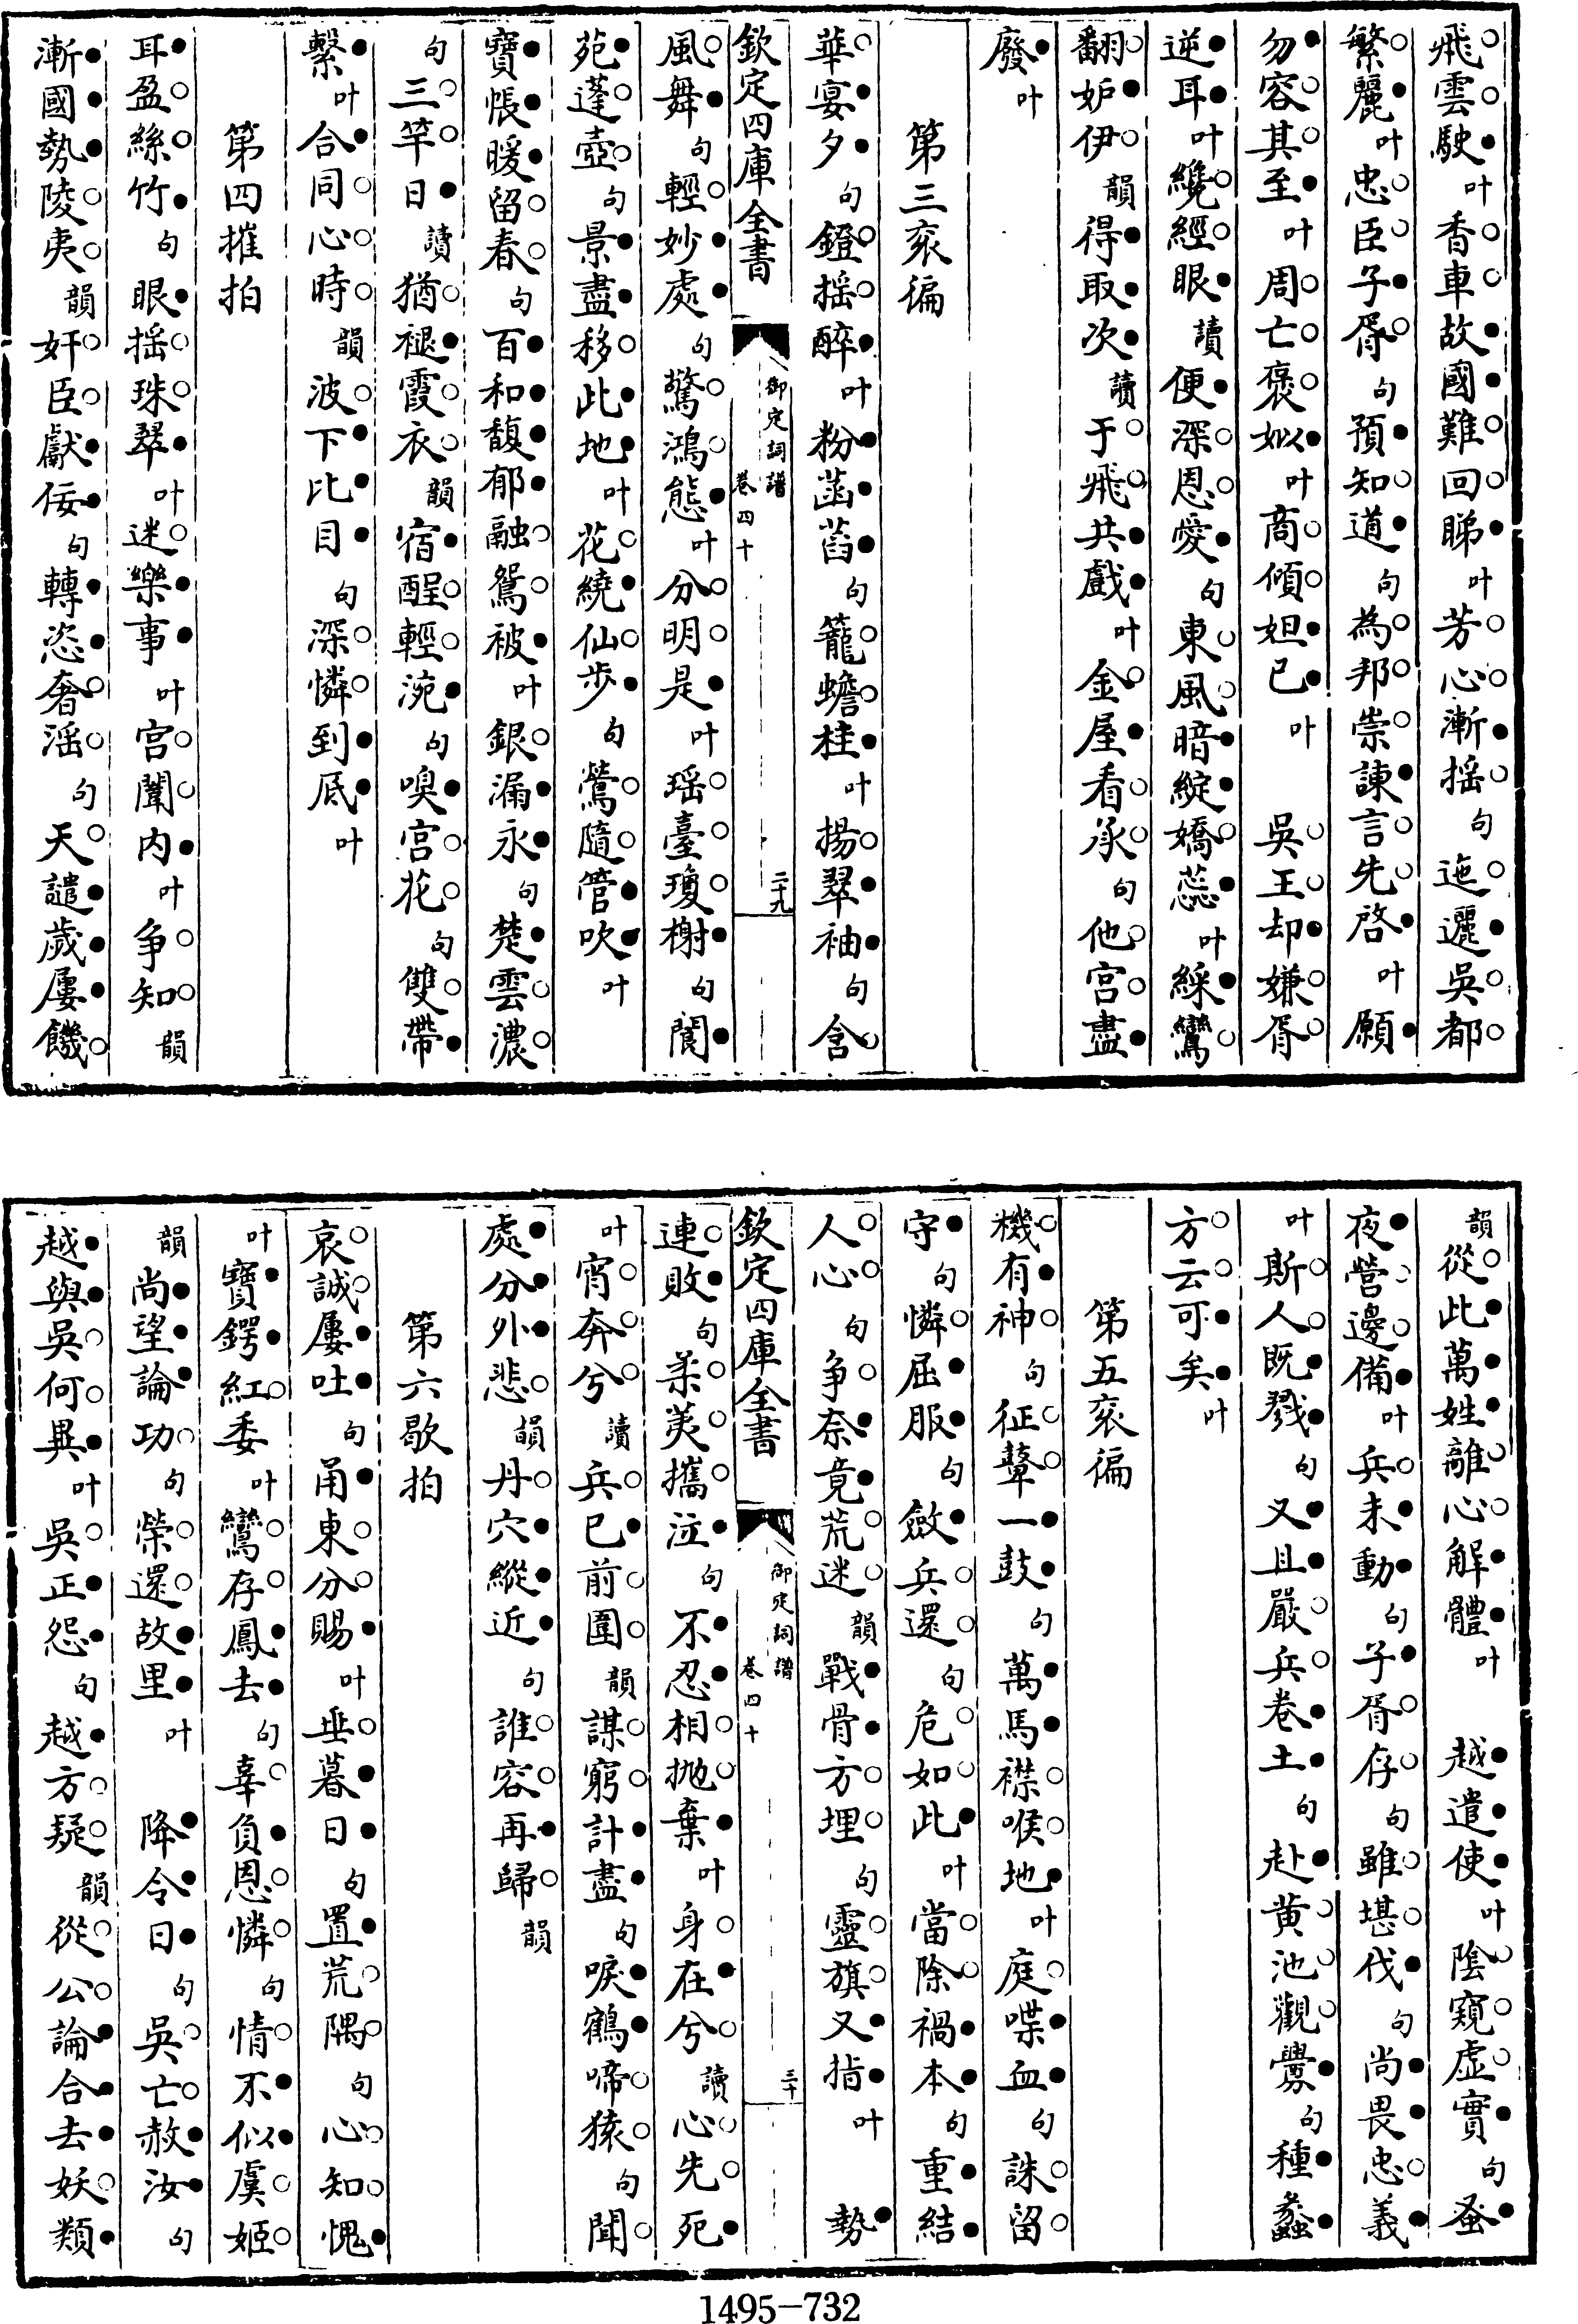 飛雲駛叶香車故國難回睇叶芳心漸摇句迤邐吳都
繁麗叶忠臣子胥句預知道句為邦崇諫言先啓叶願
勿容其至叶周亡褒姒叶商傾妲己叶　吳王却嫌胥
逆耳叶纔經眼讀便深恩愛句東風暗綻嬌蕊叶綵鸞
翻妒伊韻得取次讀于飛共戲叶金屋看承句他宮盡
廢叶
第三衮徧
華宴夕句鐙摇醉叶粉菡萏句籠蟾桂叶揚翠袖句含
欽定四庫全書
御定詞譜
卷四十
二十九
風舞句輕妙處句驚鴻態叶分明是叶瑶臺瓊榭句閬
苑蓬壺句景盡移此地叶花繞仙步句鶯隨管吹叶
寶帳暖留春句百和馥郁融鴛被叶銀漏永句楚雲濃
句三竿日讀猶褪霞衣韻宿酲輕涴句嗅宮花句雙帶
繫叶合同心時韻波下比目句深憐到底叶
第四摧拍
耳盈絲竹句眼摇珠翠叶迷樂事叶宮闈内叶争知韻
漸國勢陵夷韻奸臣獻佞句轉恣奢淫句天譴歲屢饑
韻從此萬姓離心解體叶　越遣使叶陰窺虚實句蚤
夜營邊備叶兵未動句子胥存句雖堪伐句尚畏忠義
叶斯人既戮句又且嚴兵卷土句赴黄池觀釁句種蠡
方云可矣叶
第五衮徧
機有神句征鼙一鼓句萬馬襟喉地叶庭喋血句誅留
守句憐屈服句斂兵還句危如此叶當除禍本句重結
人心句争奈竟荒迷韻戰骨方埋句靈旗又指叶　勢
欽定四庫全書
御定詞譜
卷四十
三十
連敗句柔荑攜泣句不忍相抛棄叶身在兮讀心先死
叶宵奔兮讀兵已前圍韻謀窮計盡句唳鶴啼猿句聞
處分外悲韻丹穴縱近句誰容再歸韻
第六歇拍
哀誠屢吐句甬東分賜叶垂暮日句置荒隅句心知愧
叶寶鍔紅委叶鸞存鳳去句辜負恩憐句情不似虞姬
韻尚望論功句榮還故里叶　降令曰句吳亡赦汝句
越與吳何異叶吳正怨句越方疑韻從公論合去妖類
1495-732